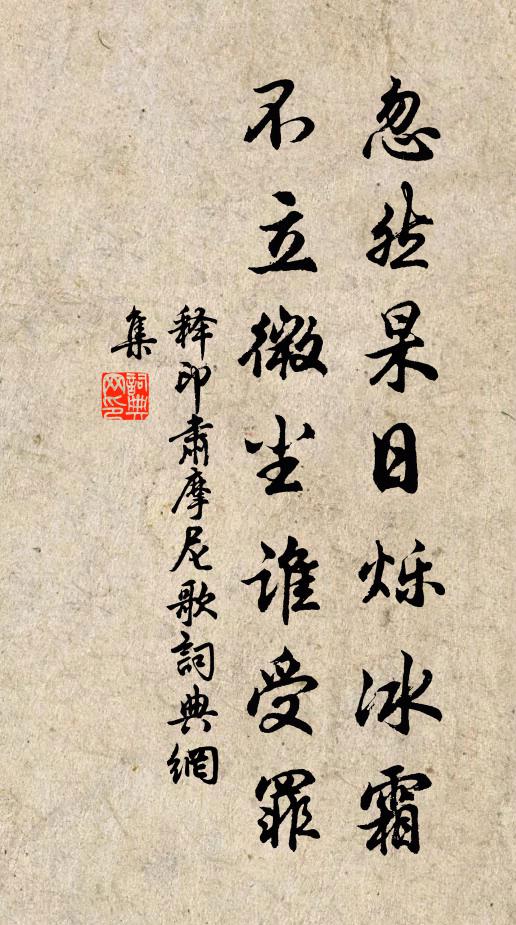 忽然杲日烁冰霜
不立微尘谁受罪
释印肃摩尼歌詞典網
集
詞典
网印